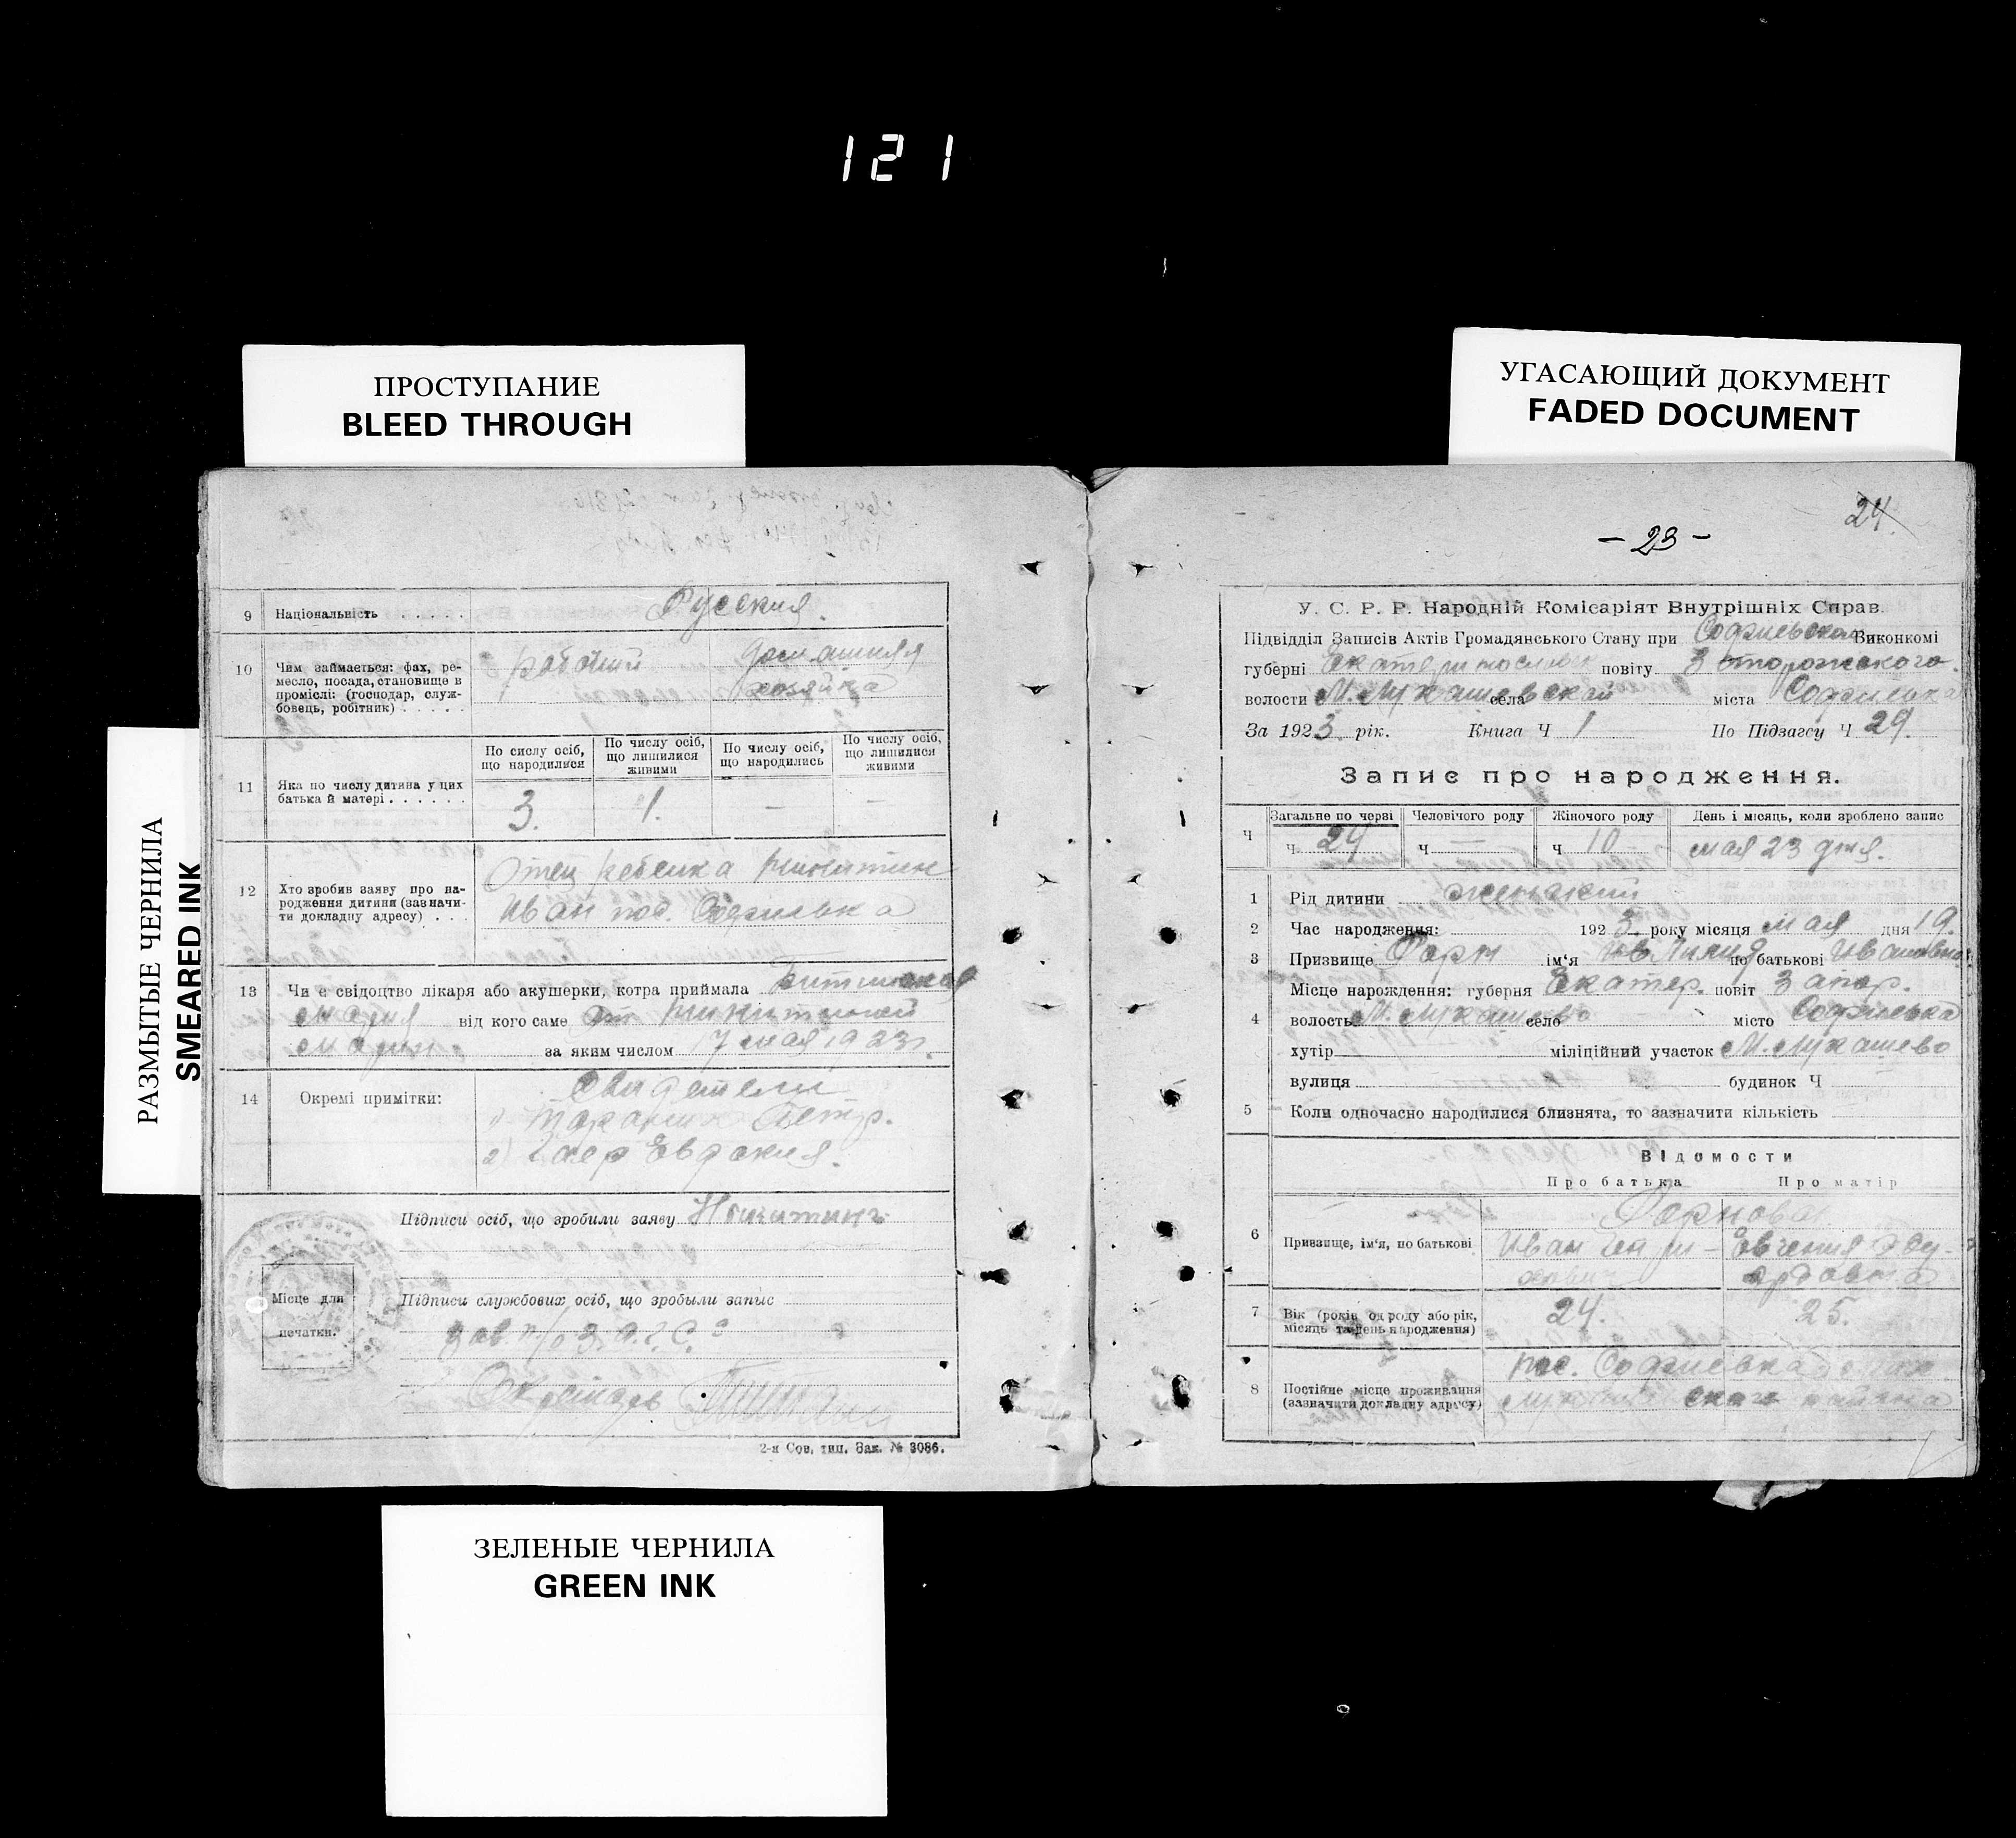 121
ПРОСТУПАНИЕ
BLEED THROUGH
УГАСАЮЩИЙ ДОКУМЕНТ
FADED DOCUMENT
РАЗМЫТЫЕ ЧЕРНИЛА
SMEARED INK
9 Національність Русския.
10 Чим займається: фах, ре-
месло, посада, становище в
промислі: (господар, служ-
бовець, робітник)
рабочий
домашняя
хозяйка
11 Яка по числу дитина у цих
батька й матері
По сислу осіб,
що народилися
По числу осіб,
що лишилися
живими
По числу осіб,
що народились
По числу осіб,
що лишилися
живими
3. 1. — —
12 Хто зробив заяву про на-
родження дитини (зазначи-
ти докладну адресу)
Отец ребенка Никитин
Иван пос. Софиевка
13 Чи є свідоцтво лікаря або акушерки, котра приймала
Мария від кого саме от Никитиной
Марии за яким числом 17 мая 1923 г.
14 Окремі примітки:
Свидетели
1) Петр.
2) Евдокия.
Підписи осіб, що зробили заяву Никитинъ
Підписи службових осіб, що зробыли запис
Зав п/о З.А.Г.С.
Місце для
печатки.
2-я Сов. тип. Зак. № 3086.
24
— 23 —
У. С. Р. Р. Народній Комісаріят Внутрішніх Справ.
Підвідділ Записів Актів Громадянського Стану при Софиевском Виконкомі
губерні Екатеринослав повіту Запорожского.
волости М. Лукашевской села міста Софиевка
За 1923 рік. Книга Ч 1 По Підзагсу Ч 29.
Запис про народження.
Ч
Загальне по черзі Человічого роду Жіночого роду День і місяць, коли зроблено запис
ч. 24 ч — ч 10 мая 23 дня.
1 Рід дитини женский
2 Час народження: 1923 року місяця мая дня 19.
3 Призвище Фарн ім'я Лилия по батькові Ивановна
4 Місце нарождення: губерня Екатер. повіт Запор.
волость М. Лукашево село місто Софиевка
хутір міліційний участок М. Лукашево
вулиця будинок Ч
5 Коли одночасно народилися близнята, то зазначити кількість
Відомости
Про батька Про матір
6 Призвище, ім'я, по батькові
Фарнова
Иван Генри-
хович
Евгения Эду-
ардовна
7 Вік (років од роду або рік,
місяць та день народження)
24. 25.
8 Постійне місце проживання
(зазначити докладну адресу)
пос. Софиевка
ского района
ЗЕЛЕНЫЕ ЧЕРНИЛА
GREEN INK